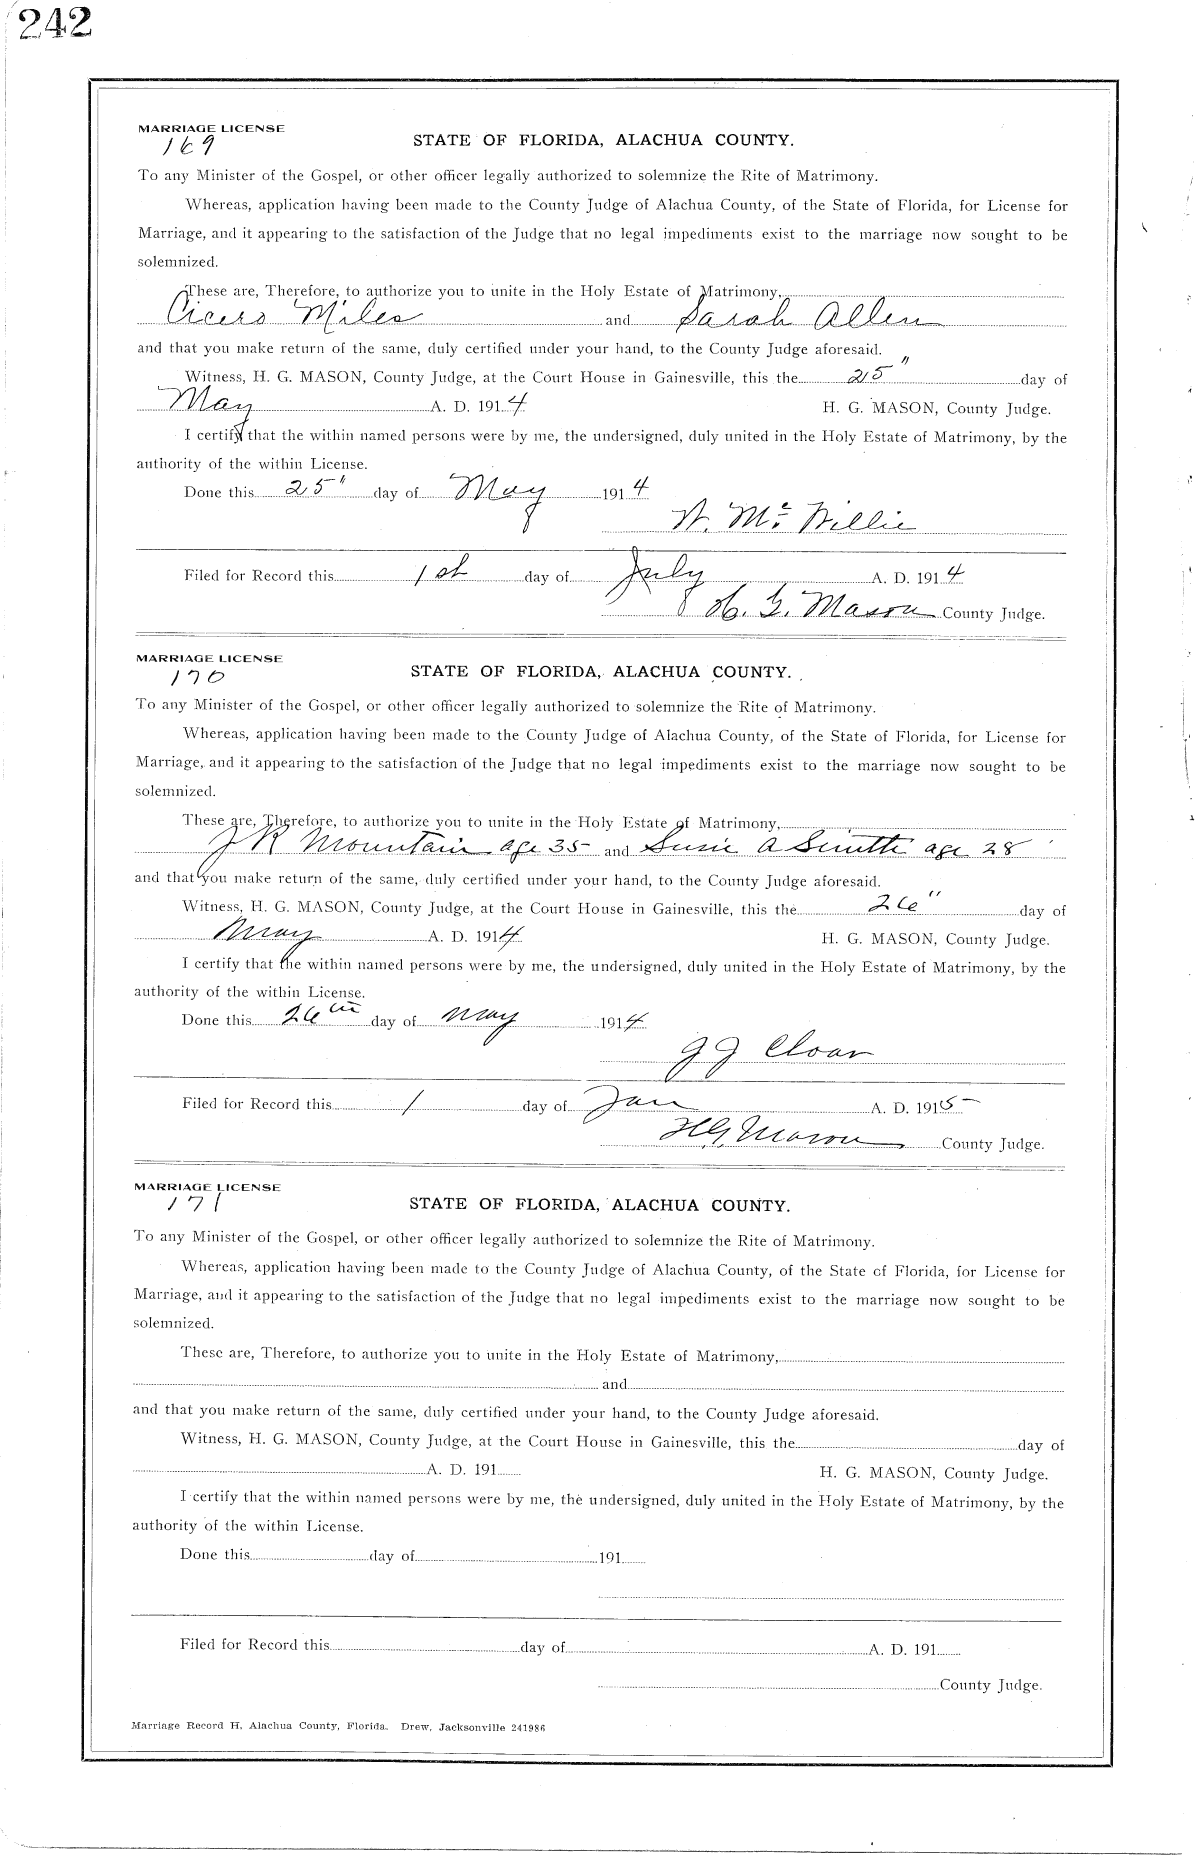 242
MARRIAGE LICENSE
169
STATE OF FLORIDA, ALACHUA COUNTY.
To any Minister of the Gospel, or other officer legally authorized to solemnize the Rite of Matrimony.
Whereas, application having been made to the County Judge of Alachua County, of the State of Florida, for License for
Marriage, and it appearing to the satisfaction of the Judge that no legal impediments exist to the marriage now sought to be
solemnized.
These are, Therefore, to authorize you to unite in the Holy Estate of Matrimony,
Cicero Miles and Sarah Allen
and that you make return of the same, duly certified under your hand, to the County Judge aforesaid.
Witness, H. G. MASON, County Judge, at the Court House in Gainesville, this the 25" day of
May A. D. 1914 H. G. MASON, County Judge.
I certify that the within named persons were by me, the undersigned, duly united in the Holy Estate of Matrimony, by the
authority of the within License.
Done this 25" day of May 1914
W. Mc Willie
Filed for Record this 1st day of July A. D. 1914
H. G. Mason County Judge.
MARRIAGE LICENSE
170
STATE OF FLORIDA, ALACHUA COUNTY.
To any Minister of the Gospel, or other officer legally authorized to solemnize the Rite of Matrimony.
Whereas, application having been made to the County Judge of Alachua County, of the State of Florida, for License for
Marriage, and it appearing to the satisfaction of the Judge that no legal impediments exist to the marriage now sought to be
solemnized.
These are, Therefore, to authorize you to unite in the Holy Estate of Matrimony,
J R Mountain age 35 and Susie A Smith age 28
and that you make return of the same, duly certified under your hand, to the County Judge aforesaid.
Witness, H. G. MASON, County Judge, at the Court House in Gainesville, this the 26" day of
May A. D. 1914 H. G. MASON, County Judge.
I certify that the within named persons were by me, the undersigned, duly united in the Holy Estate of Matrimony, by the
authority of the within License.
Done this 26th day of May 1914
J J Cloar
Filed for Record this 1 day of Jan A. D. 1915
H.G. Mason County Judge.
MARRIAGE LICENSE
171
STATE OF FLORIDA, ALACHUA COUNTY.
To any Minister of the Gospel, or other officer legally authorized to solemnize the Rite of Matrimony.
Whereas, application having been made to the County Judge of Alachua County, of the State of Florida, for License for
Marriage, and it appearing to the satisfaction of the Judge that no legal impediments exist to the marriage now sought to be
solemnized.
These are, Therefore, to authorize you to unite in the Holy Estate of Matrimony,
and
and that you make return of the same, duly certified under your hand, to the County Judge aforesaid.
Witness, H. G. MASON, County Judge, at the Court House in Gainesville, this the day of
A. D. 191 H. G. MASON, County Judge.
I certify that the within named persons were by me, the undersigned, duly united in the Holy Estate of Matrimony, by the
authority of the within License.
Done this day of 191
Filed for Record this day of A. D. 191
County Judge.
Marriage Record H, Alachua County, Florida. Drew, Jacksonville 241986